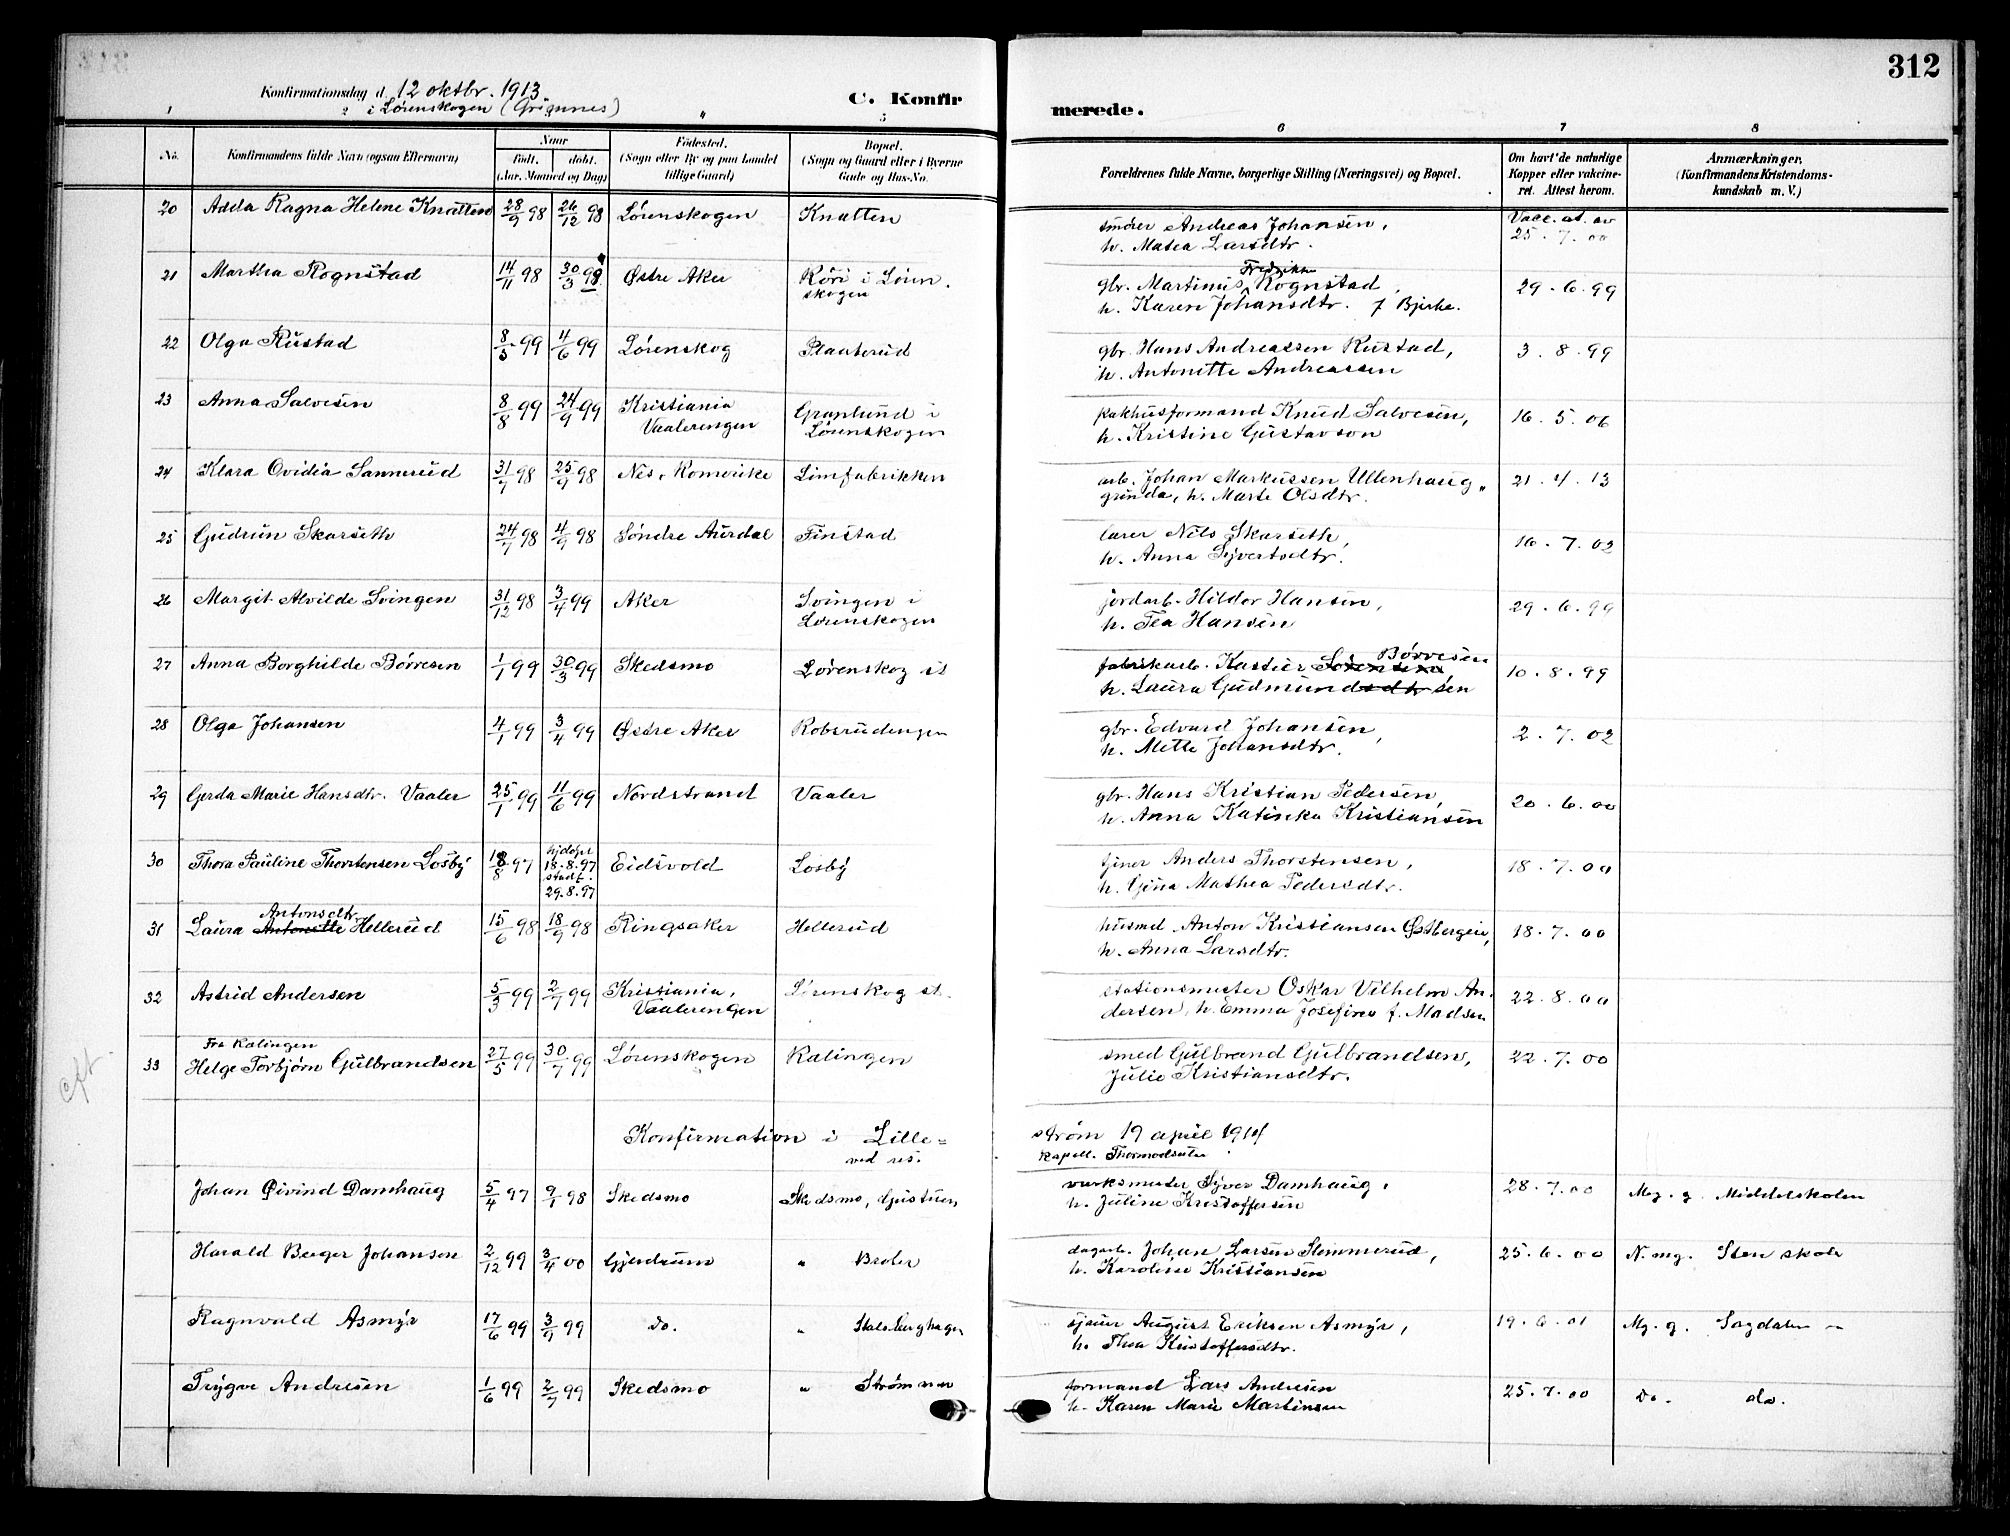 312
Konfirmationsdag d. 12 oktbr. 1913
i Lørenskogen (Grimnes)
C. Konfirmerede.
1 2 4 5 6 7 8
No. Konfirmandens fulde Navn (ogsaa Efternavn) Naar født. døbt. (Aar, Maaned og Dag) Fødested. (Sogn eller By og paa Landet tillige Gaard) Bopæl. (Sogn og Gaard eller i Byerne Gade og Hus-No. Forældrenes fulde Navne, borgerlige Stilling (Næringsvei) og Bopæl. Om havt de naturlige Kopper eller vaccineret. Attest herom. Anmærkninger. (Konfirmandens Kristendomskundskab m. V.)
20 Adda Ragna Helene Knatten 28/9 98 26/12 98 Lørenskogen Knatten smører Andreas Johansen, Vacc. at. av
h. Matea Larsdtr. 25.7.00
21 Martha Rognstad 14/11 98 30/3 99 Østre Aker i Løren- gbr. Martinus Fredrikke Rognstad, 29.6.99
skogen h. Karen Johansdtr. f Bjerke.
22 Olga Rustad 8/3 99 4/6 99 Lørenskog Plaaterud gbr. Hans Andreassen Rustad, 3.8.99
h. Antonette Andreassen
23 Anna Salvesen 8/8 99 24/9 99 Kristiania Granlund i pakhusformand Knud Salvesen, 16.5.06
Vaalerengen Lørenskogen h. Kristine Gustavson
24 Klara Ovidia Sannerud 31/7 98 25/9 98 Nes, Romerike Limfabrikken arb. Johan Markussen Ullenhaug- 21.4.13
grinda, h. Marte Olsdtr.
25 Gudrun Skarseth 24/7 98 4/9 98 Søndre Aurdal Finstad lærer Nils Skarseth, 16.7.02
h. Anna Syvertsdtr.
26 Margit Alvilde Svingen 31/12 98 3/4 99 Aker Svingen i jordarb. Hildor Hansen, 29.6.99
Lørenskogen h. Tea Hansen
27 Anna Borghilde Børresen 1/1 99 30/3 99 Skedsmo Lørenskog st fabrikarb. Børresen 10.8.99
h. Laura Gudmundsdtr sen
28 Olga Johansen 4/1 99 3/4 99 Østre Aker Robsrudengen gbr. Edvard Johansen, 2.7.02
h. Mette Johansdtr.
29 Gerda Marie Hansdtr. Vaaler 25/1 99 11/6 99 Nordstrand Vaaler gbr. Hans Kristian Pedersen, 20.6.00
h. Anna Katinka Kristiansen
30 Thora Pauline Thorstensen Losby 18/8 97 hjdøpt 18.8.97 Eidsvold Losby tjener Anders Thorstensen, 18.7.00
stadf. 29.8.97 h. Gina Mathea Pedersdtr.
31 Laura Antonette Antonsdtr. Hellerud 15/6 98 18/9 98 Ringsaker Hellerud husmd Anton Kristiansen Østbergeie, 18.7.00
h. Anna Larsdtr.
32 Astrid Andersen 5/3 99 2/7 99 Kristiania, Lørenskog st. stationsmester Oskar Vilhelm An- 22.8.00
Vaalerengen dersen, h. Emma Josefine f. Madsen
Fra Kalingen
33 Helge Torbjørn Gulbrandsen 27/5 99 30/7 99 Lørenskogen Kalingen smed Gulbrand Gulbrandsen, 22.7.00
Julie Kristiansdtr.
Konfirmation i Lille=strøm 19 april 1914
ved res. kapell. Thormodsæter
Johan Øivind Damhaug 5/4 97 9/1 98 Skedsmo Skedsmo, verksmester Syver Damhaug, 28.7.00 Mg. g. Middelskolen
h. Juline Kristoffersen
Harald Berger Johansen 2/12 99 3/4 00 Gjerdrum " Braler dagarb. Johan Larsen Slemmerud, 25.6.00 N. mg. Sten skole
h. Karoline Kristiansen
Ragnvald Asmyr 17/6 99 3/9 99 do. " Stalsberghagen sjauer August Eriksen Asmyr, 19.6.01 Mg. g. Sagdalen "
h. Thea Kristoffersdtr.
Trygve Andresen 1/6 99 2/7 99 Skedsmo " Strømmen formand Lars Andresen 25.7.00 Do. do.
h. Karen Marie Martinsen